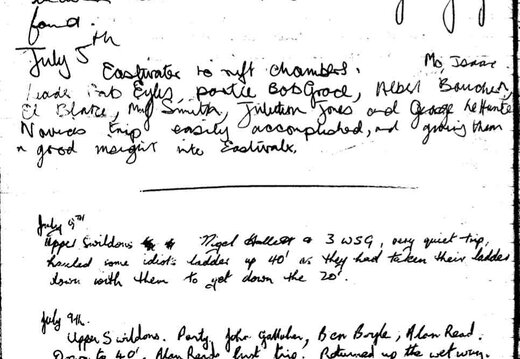 found.
July 5th
Eastwater to rift chambers. Mo, Isaac
Leader Pat Eyles, Bob Grace, Albert Boucher,
El Blake, Smith, Jones and George
Novices trip easily accomplished, and giving them
a good insight into Eastwater.
July 9TH
Upper Swildons Nigel Hallett & 3 WSG, very quiet trip,
hauled some idiots ladder up 40' as they had taken their ladder
down with them to get down the 20'.
July 9th.
Upper Swildons. Party, John Gallaher, Ben Boyle, Alan Read.
Down to 40'. Alan Reads first trip. Returned up the wet way.